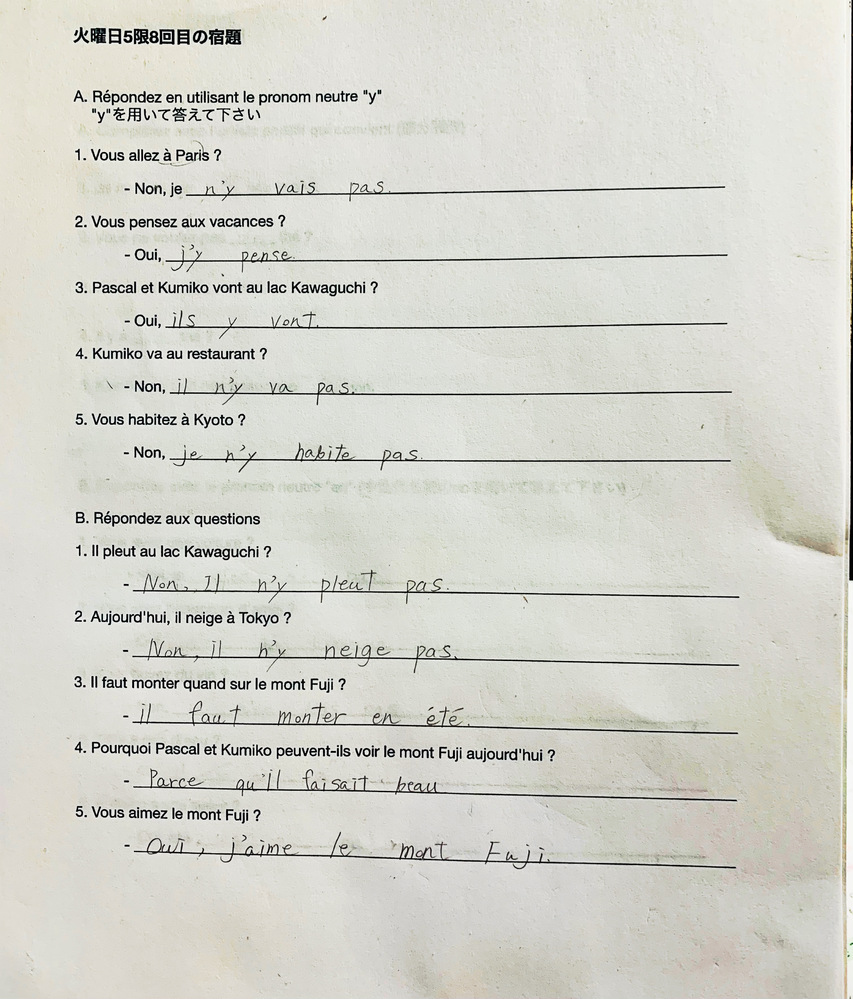 火曜日5限8回目の宿題
A. Répondez en utilisant le pronom neutre "y"
"y"を用いて答えて下さい
1. Vous allez à Paris ?
- Non, je n'y vais pas.
2. Vous pensez aux vacances ?
- Oui, j'y pense.
3. Pascal et Kumiko vont au lac Kawaguchi ?
- Oui, ils y vont.
4. Kumiko va au restaurant ?
- Non, il n'y va pas.
5. Vous habitez à Kyoto ?
- Non, je n'y habite pas.
B. Répondez aux questions
1. Il pleut au lac Kawaguchi ?
- Non, Il n'y pleut pas.
2. Aujourd'hui, il neige à Tokyo ?
- Non, il n'y neige pas.
3. Il faut monter quand sur le mont Fuji ?
- il faut monter en été.
4. Pourquoi Pascal et Kumiko peuvent-ils voir le mont Fuji aujourd'hui ?
- Parce qu'il faisait beau
5. Vous aimez le mont Fuji ?
- Oui, j'aime le mont Fuji.